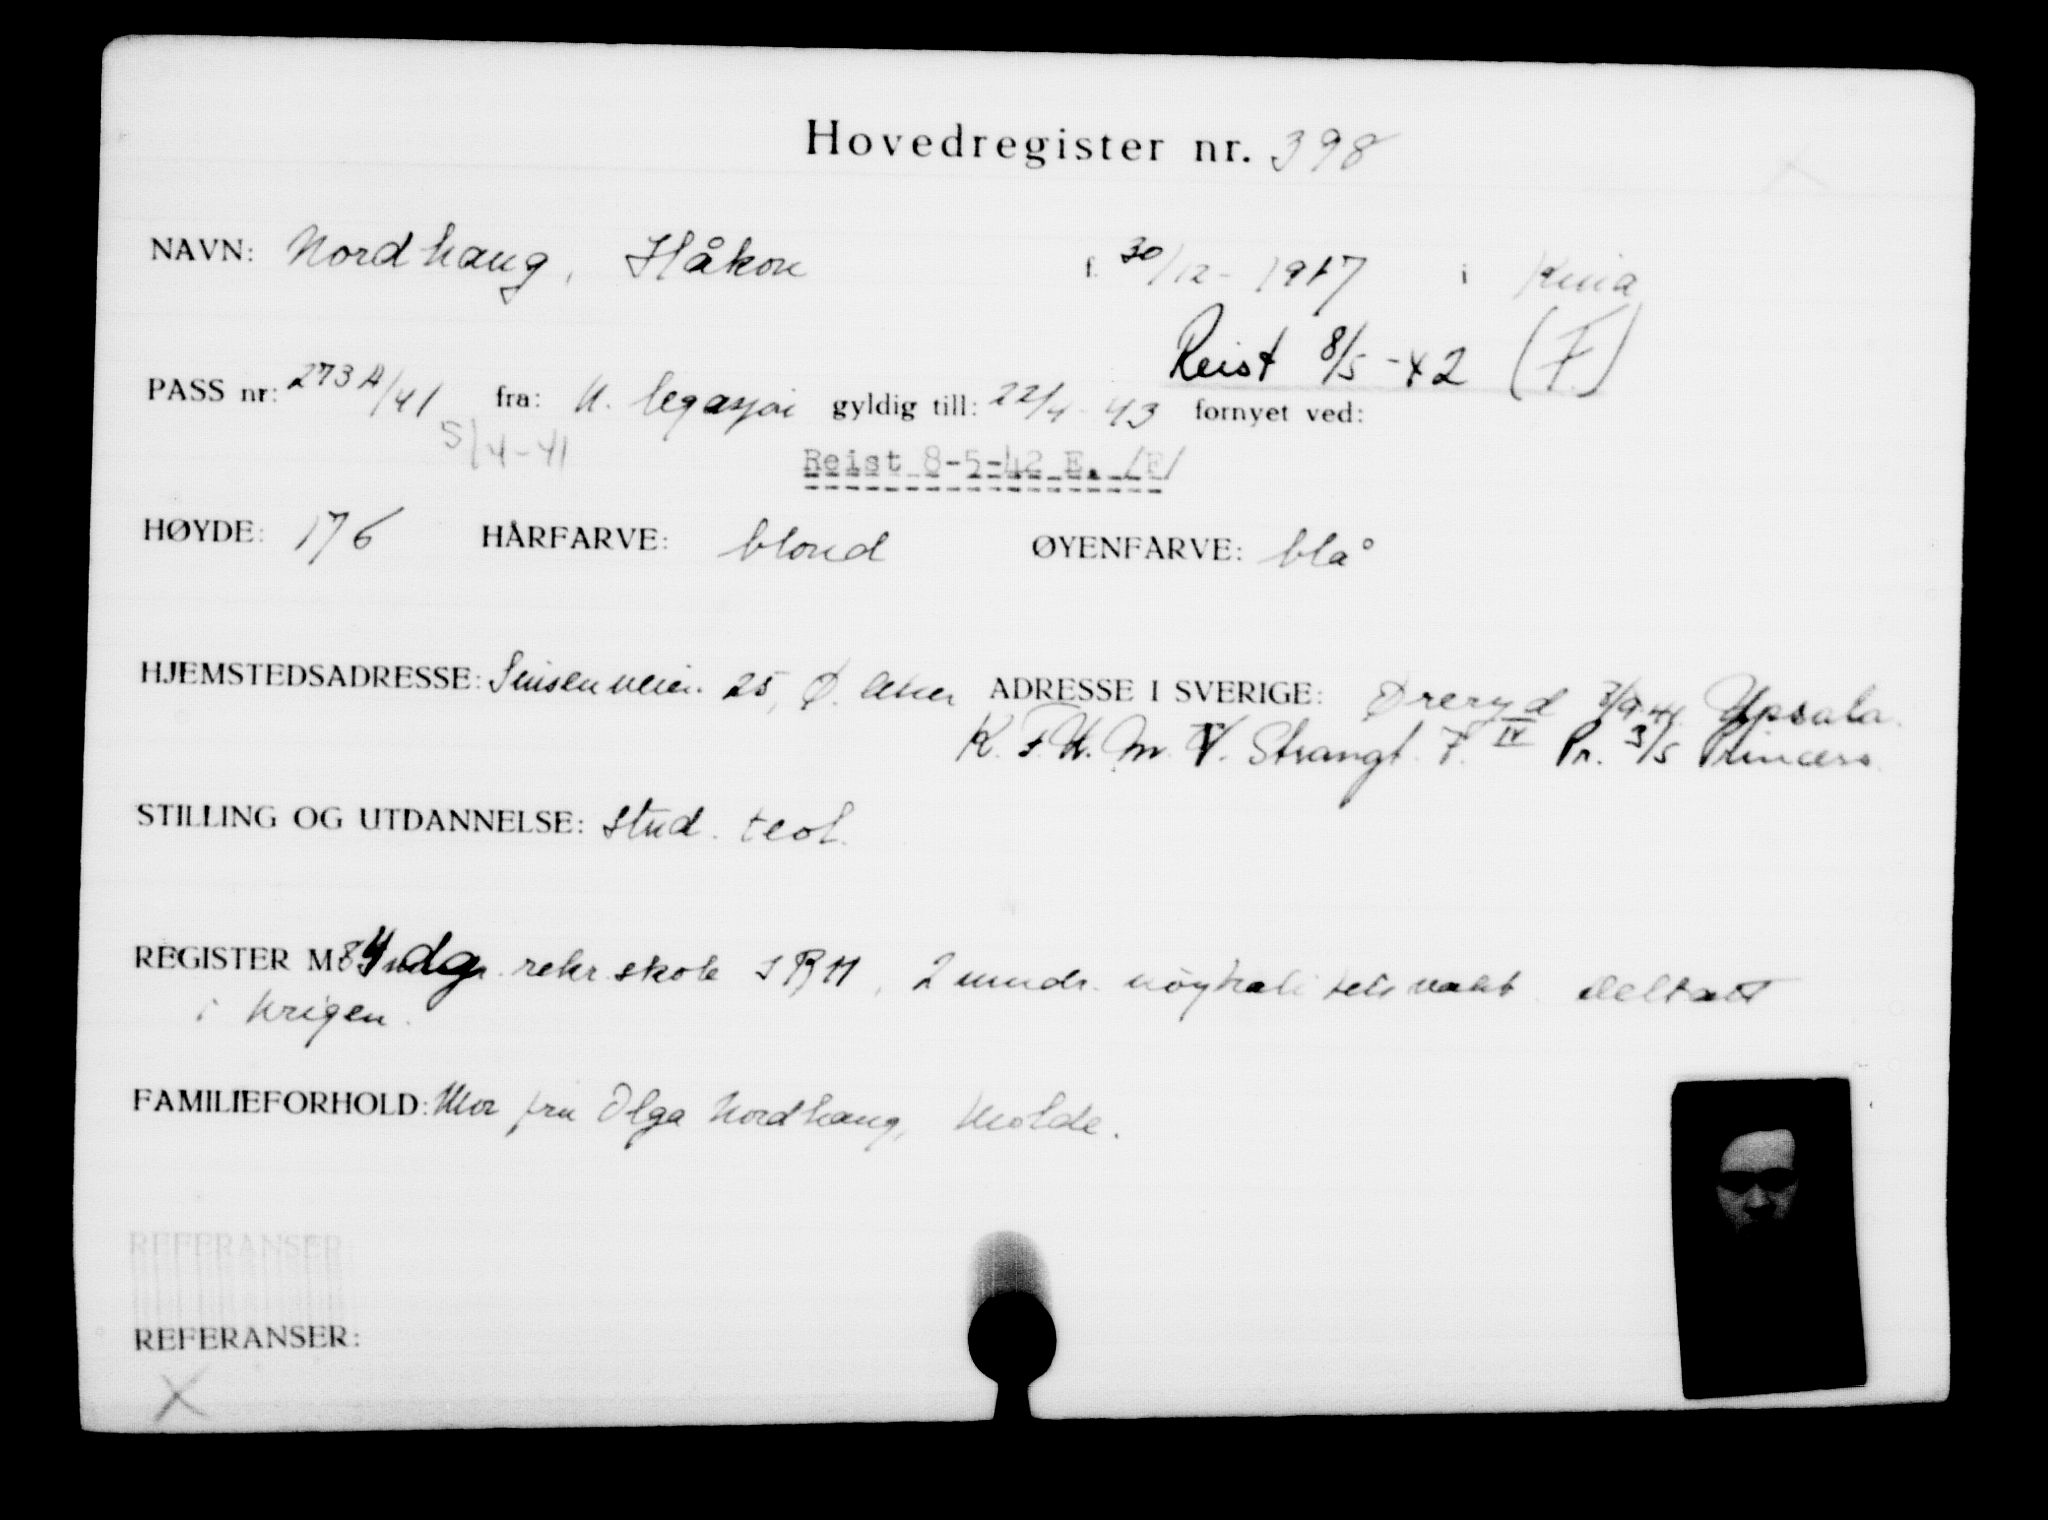 Hovedregister nr. 398
NAVN: Nordhaug, Håkon f. 30/12 - 1917 i Kina
Reist 8/5 - 42 (F)
PASS nr: 273 A/41 fra: N. legasjon gyldig till: 22/4 - 43 fornyet ved:
5/4-41
Reist 8-5-42 E. /F/
HØYDE: 176 HÅRFARVE: blond ØYENFARVE: blå
HJEMSTEDSADRESSE: Sinsenveien 25, Ø. Aker ADRESSE I SVERIGE: Öreryd 3/9 41. Upsala.
K.F.U.M. V. Strangt. 7. IV Pr. 3/5 Princess
STILLING OG UTDANNELSE: stud. teol.
REGISTER M: 84 dg. rekr. skole I R 11, 2 mndr. nøytralitetsvakt. Deltatt
i krigen.
FAMILIEFORHOLD: Mor fru Olga Nordhaug, Molde.
REFERANSER
REFERANSER:
X